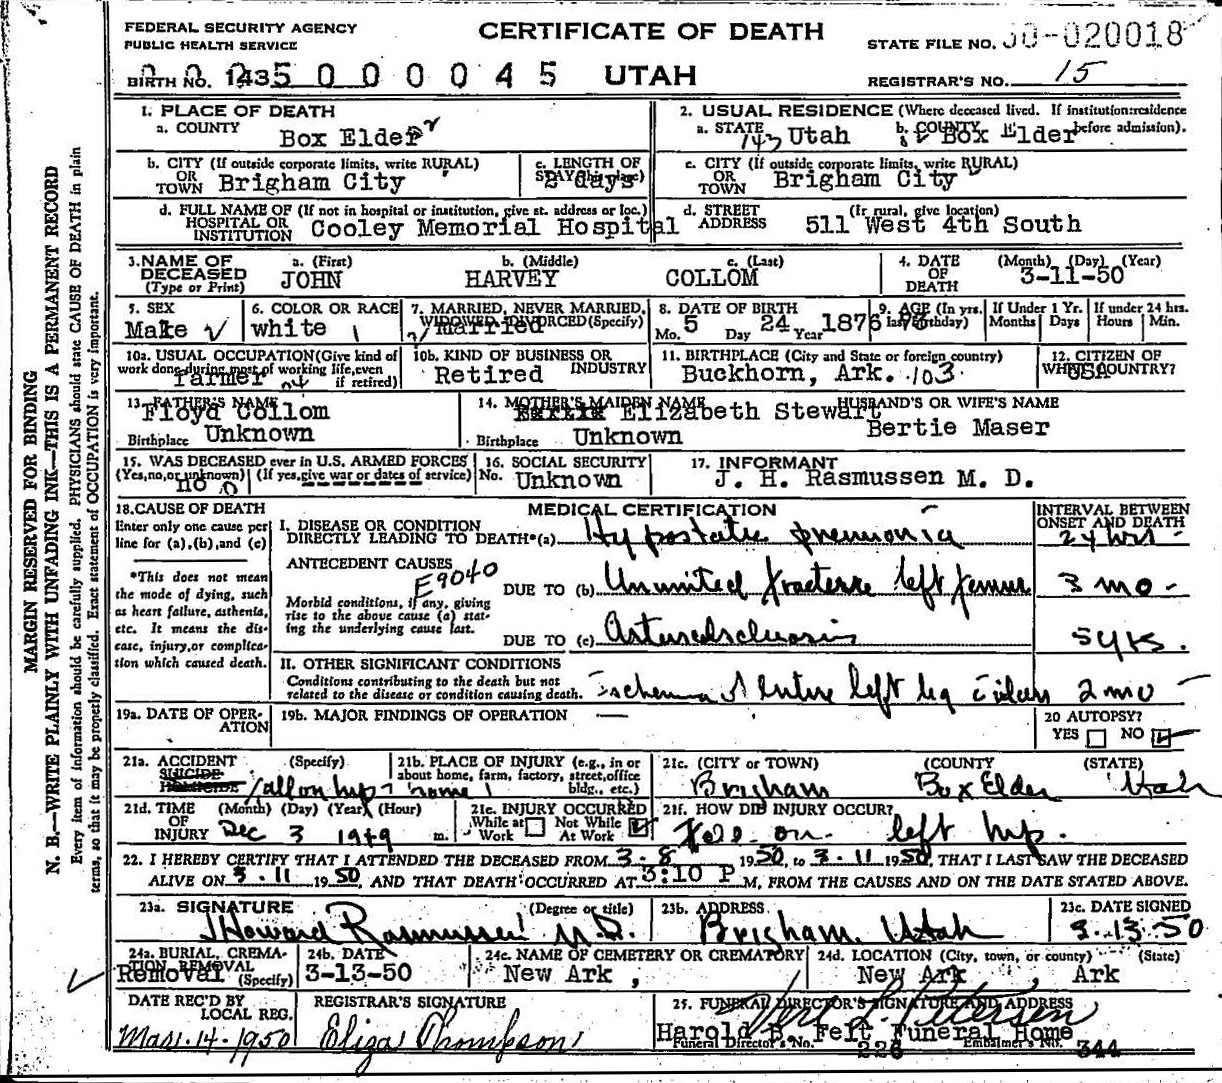 FEDERAL SECURITY AGENCY
PUBLIC HEALTH SERVICE
CERTIFICATE OF DEATH
STATE FILE NO. 50-020018
BIRTH NO. 143 5 0 0 0 0 4 5 UTAH
REGISTRAR'S NO. 15
1. PLACE OF DEATH
a. COUNTY Box Elder
2. USUAL RESIDENCE (Where deceased lived. If institution:residence before admission).
a. STATE 143 Utah b. COUNTY Box Elder
b. CITY (If outside corporate limits, write RURAL) OR TOWN Brigham City
c. LENGTH OF STAY (in this place) 2 days
c. CITY (If outside corporate limits, write RURAL) OR TOWN Brigham City
d. FULL NAME OF (If not in hospital or institution, give st. address or loc.) HOSPITAL OR INSTITUTION Cooley Memorial Hospital
d. STREET ADDRESS (If rural, give location) 511 West 4th South
3. NAME OF DECEASED (Type or Print) a. (First) JOHN b. (Middle) HARVEY c. (Last) COLLOM
4. DATE OF DEATH (Month) (Day) (Year) 3-11-50
5. SEX Male
6. COLOR OR RACE white
7. MARRIED, NEVER MARRIED, WIDOWED, DIVORCED (Specify) married
8. DATE OF BIRTH Mo. 5 Day 24 Year 1876
9. AGE (In yrs. last birthday) If Under 1 Yr. Months Days If under 24 hrs. Hours Min.
10a. USUAL OCCUPATION (Give kind of work done during most of working life, even if retired) farmer
10b. KIND OF BUSINESS OR INDUSTRY Retired
11. BIRTHPLACE (City and State or foreign country) Buckhorn, Ark. 103
12. CITIZEN OF WHAT COUNTRY? USA
13. FATHER'S NAME Floyd Collom
Birthplace Unknown
14. MOTHER'S MAIDEN NAME Elizabeth Stewart
Birthplace Unknown
HUSBAND'S OR WIFE'S NAME
Bertie Maser
15. WAS DECEASED ever in U.S. ARMED FORCES (Yes, no, or unknown) (If yes, give war or dates of service) no 0
16. SOCIAL SECURITY No. Unknown
17. INFORMANT J. H. Rasmussen M. D.
18. CAUSE OF DEATH
Enter only one cause per line for (a), (b), and (c)
*This does not mean the mode of dying, such as heart failure, asthenia, etc. It means the disease, injury, or complication which caused death.
MEDICAL CERTIFICATION
INTERVAL BETWEEN ONSET AND DEATH
I. DISEASE OR CONDITION DIRECTLY LEADING TO DEATH*(a) Hypostatic pneumonia 24 hrs
ANTECEDENT CAUSES E9040
Morbid conditions, if any, giving rise to the above cause (a) stating the underlying cause last.
DUE TO (b) Ununited fracture left femur 3 mo -
DUE TO (c) Arteriosclerosis 5 yrs.
II. OTHER SIGNIFICANT CONDITIONS
Conditions contributing to the death but not related to the disease or condition causing death. Ischemia of entire left leg 2 mo
19a. DATE OF OPERATION
19b. MAJOR FINDINGS OF OPERATION —
20 AUTOPSY? YES NO
21a. ACCIDENT SUICIDE HOMICIDE (Specify) fall on hip
21b. PLACE OF INJURY (e.g., in or about home, farm, factory, street, office bldg., etc.) home
21c. (CITY OR TOWN) Brigham (COUNTY) Box Elder (STATE) Utah
21d. TIME OF INJURY (Month) (Day) (Year) (Hour) Dec 3 1949 m.
21e. INJURY OCCURRED While at Work Not While At Work
21f. HOW DID INJURY OCCUR? Fell on left hip.
22. I HEREBY CERTIFY THAT I ATTENDED THE DECEASED FROM 3-8 1950, to 3-11 1950, THAT I LAST SAW THE DECEASED
ALIVE ON 3-11 1950, AND THAT DEATH OCCURRED AT 3:10 P M, FROM THE CAUSES AND ON THE DATE STATED ABOVE.
23a. SIGNATURE (Degree or title) J Howard Rasmussen M.D.
23b. ADDRESS Brigham, Utah
23c. DATE SIGNED 3-13-50
24a. BURIAL, CREMATION, REMOVAL (Specify) Removal
24b. DATE 3-13-50
24c. NAME OF CEMETERY OR CREMATORY New Ark,
24d. LOCATION (City, town, or county) (State) New Ark, Ark
DATE REC'D BY LOCAL REG. Mar. 14-1950
REGISTRAR'S SIGNATURE Eliza Thompson
25. FUNERAL DIRECTOR'S SIGNATURE AND ADDRESS Vert L. Petersen
Harold B. Felt Funeral Home
Funeral Director's No. 226 Embalmer's No. 344
MARGIN RESERVED FOR BINDING
N. B.—WRITE PLAINLY WITH UNFADING INK—THIS IS A PERMANENT RECORD
Every item of information should be carefully supplied. PHYSICIANS should state CAUSE OF DEATH in plain
terms, so that it may be properly classified. Exact statement of OCCUPATION is very important.